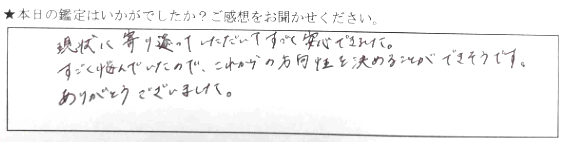 ★本日の鑑定はいかがでしたか？ご感想をお聞かせください。
現状に寄り添っていただいてすごく安心できました。
すごく悩んでいたので、これからの方向性を決めることができそうです。
ありがとうございました。